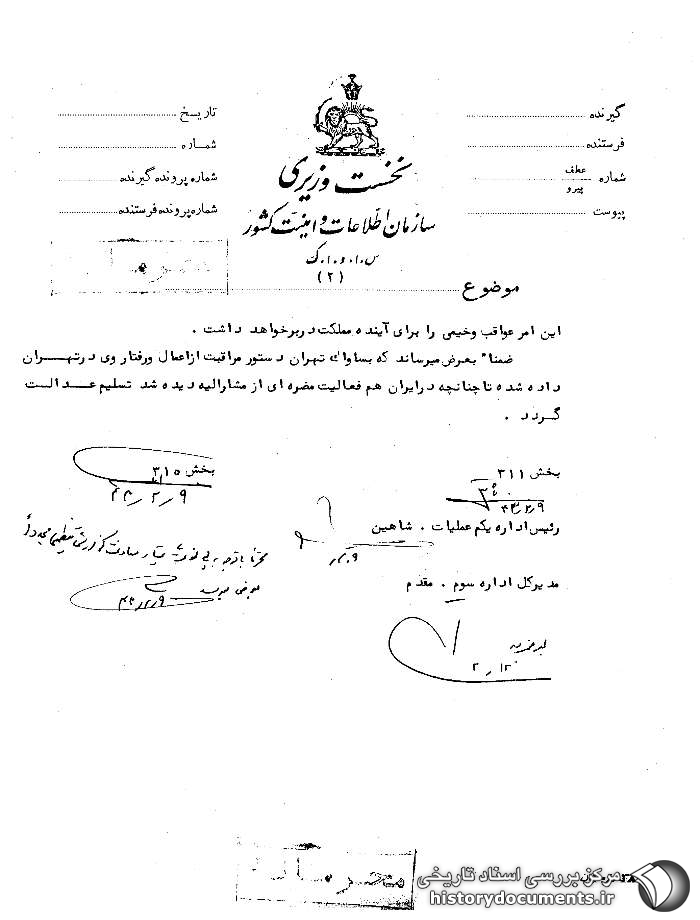 گیرنده
فرستنده
شماره عطف پیرو
پیوست
تاریخ
شماره
شماره پرونده گیرنده
شماره پرونده فرستنده
نخست وزیری
سازمان اطلاعات و امنیت کشور
س.ا.و.ا.ک
(۲)
موضوع
این امر عواقب وخیمی را برای آینده مملکت دربرخواهد داشت .
ضمناً بعرض میرساند که بساواک تهران دستور مراقبت ازاعمال ورفتار وی درتهران
داده شده تا چنانچه درایران هم فعالیت مضره ای از مشارالیه دیده شد تسلیم عدالت
گردد .
بخش ۳۱۱
۴۳/۲/۹
بخش ۳۱۵
۴۳/۲/۹
رئیس اداره یکم عملیات . شاهین
۲/۹
مدیرکل اداره سوم . مقدم
محترما باتوجه به
۴۳/۲/۹
۲/۱۲
محرمانه
مرکز بررسی اسناد تاریخی
historydocuments.ir